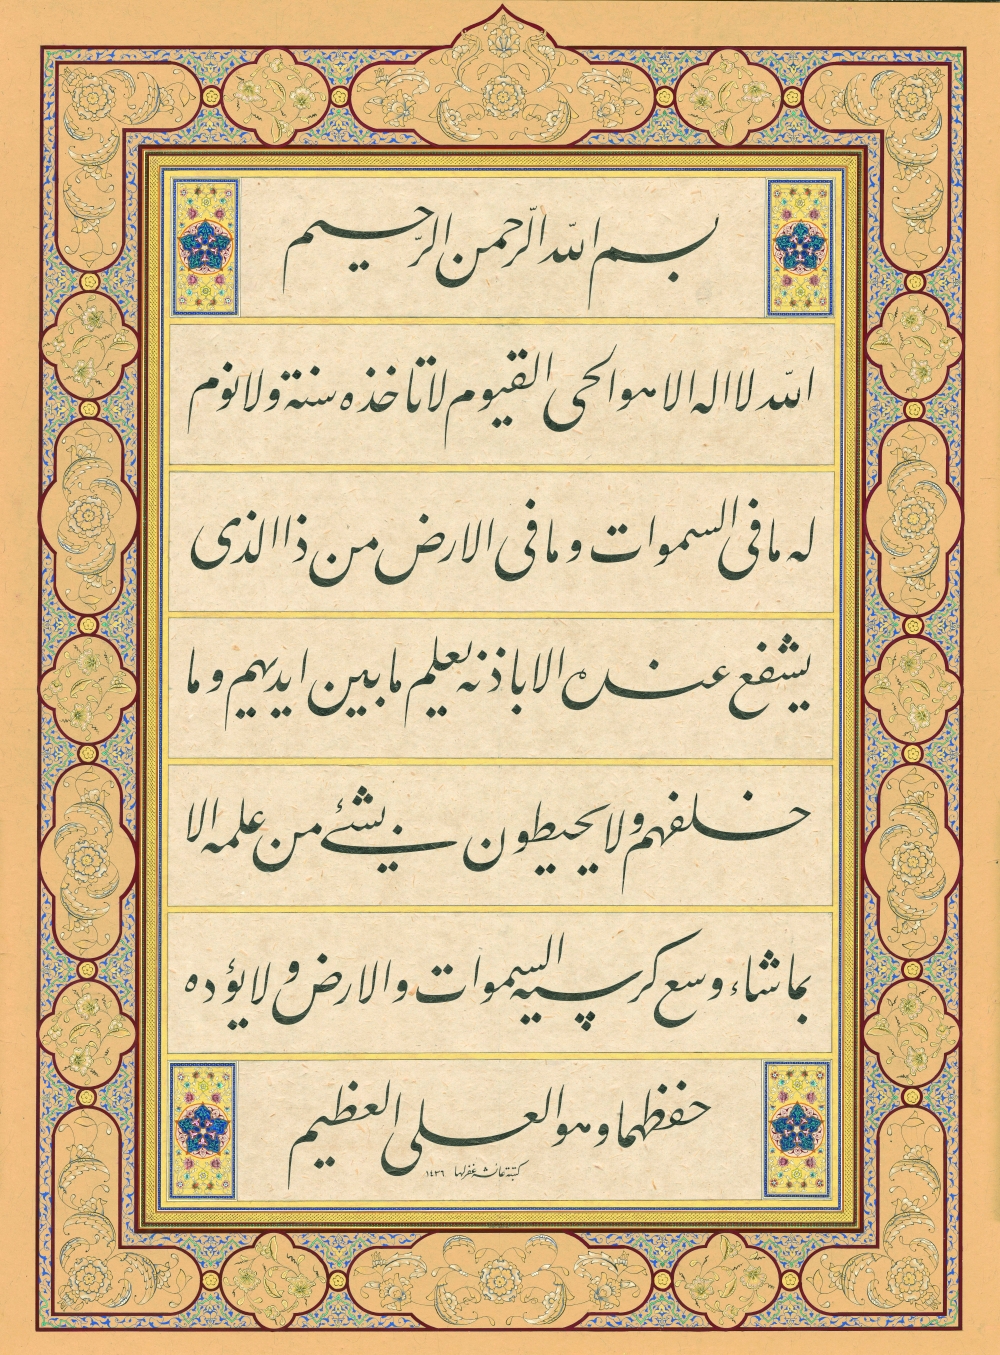 بسم الله الرّحمن الرّحيم
الله لا اله الا هو الحى القيوم لا تاخذه سنة ولا نوم
له ما فى السموات و ما فى الارض من ذا الذى
يشفع عنده الا باذنه يعلم ما بين ايديهم و ما
خلفهم ولا يحيطون بشئ من علمه الا
بما شاء وسع كرسيه السموات والارض و لا يؤده
حفظهما وهو العلى العظيم
كتبته عائشه غفرلها ١٤٣٦